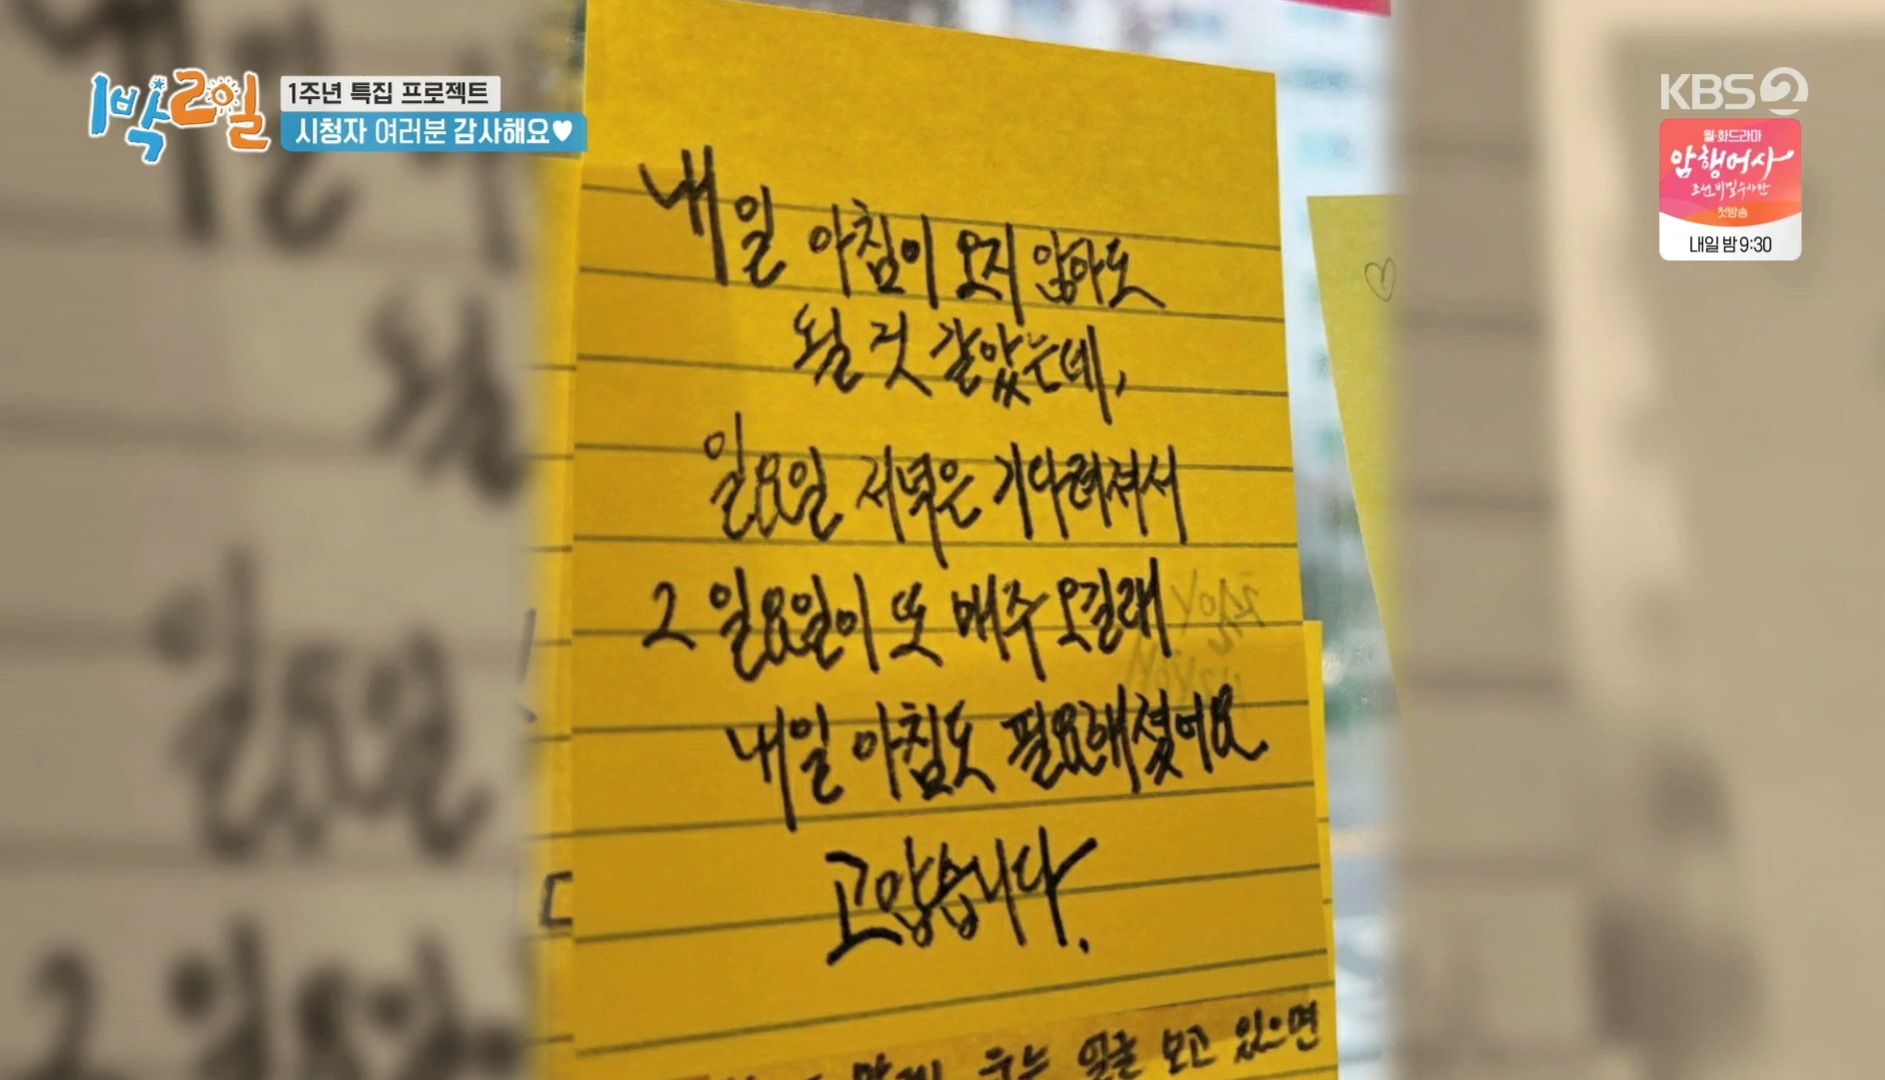 1박2일
1주년 특집 프로젝트
시청자 여러분 감사해요♥
KBS 2
월·화드라마
암행어사
조선비밀수사단
첫방송
내일 밤 9:30
내일 아침이 오지 않아도
될 것 같았는데,
일요일 저녁은 기다려져서
그 일요일이 또 매주 오길래
내일 아침도 필요해졌어요
고맙습니다.
웃는 얼굴 보고 있으면